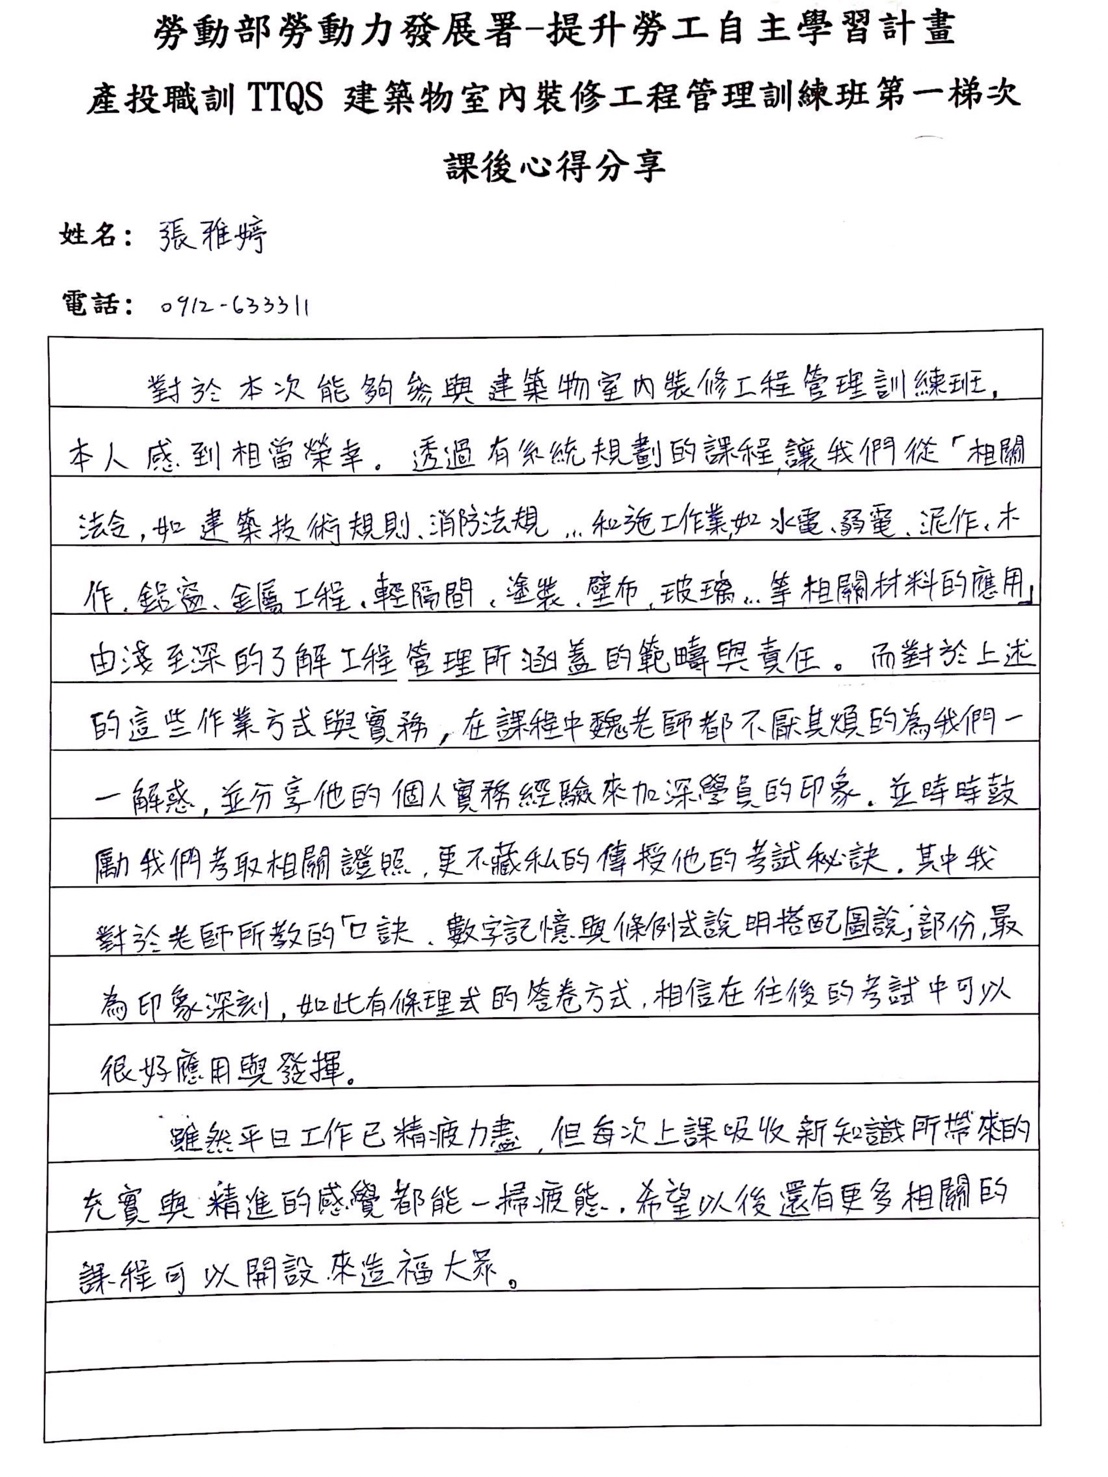 勞動部勞動力發展署-提升勞工自主學習計畫
產投職訓 TTQS 建築物室內裝修工程管理訓練班第一梯次
課後心得分享
姓名：張雅婷
電話：0912-633311
對於本次能夠參與建築物室內裝修工程管理訓練班，
本人感到相當榮幸。透過有系統規劃的課程，讓我們從「相關
法令，如建築技術規則、消防法規…和施工作業，如水電、弱電、泥作、木
作、鋁窗、金屬工程、輕隔間、塗裝、壁布、玻璃…等相關材料的應用」
由淺至深的了解工程管理所涵蓋的範疇與責任。而對於上述
的這些作業方式與實務，在課程中魏老師都不厭其煩的為我們一
一解惑，並分享他的個人實務經驗來加深學員的印象。並時時鼓
勵我們考取相關證照，更不藏私的傳授他的考試秘訣。其中我
對於老師所教的「口訣、數字記憶與條例式說明搭配圖說」部份，最
為印象深刻，如此有條理式的答卷方式，相信在往後的考試中可以
很好應用與發揮。
雖然平日工作已精疲力盡，但每次上課吸收新知識所帶來的
充實與精進的感覺都能一掃疲態。希望以後還有更多相關的
課程可以開設來造福大眾。